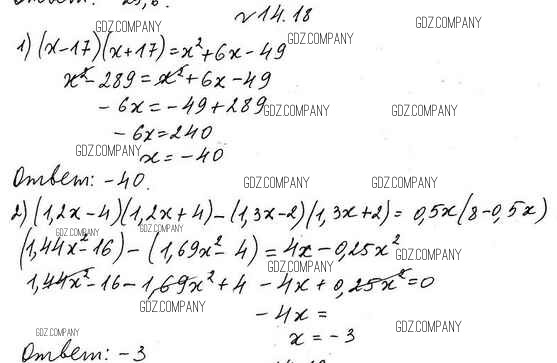 Ответ: 25,6.
№14.18
1) (x-17)(x+17)=x²+6x-49
x²-289=x²+6x-49
-6x=-49+289
-6x=240
x=-40
Ответ: -40.
2) (1,2x-4)(1,2x+4)-(1,3x-2)(1,3x+2)=0,5x(8-0,5x)
(1,44x²-16)-(1,69x²-4)=4x-0,25x²
1,44x²-16-1,69x²+4-4x+0,25x²=0
-4x=
x=-3
Ответ: -3
GDZ.COMPANY
GDZ.COMPANY
GDZ.COMPANY
GDZ.COMPANY
GDZ.COMPANY
GDZ.COMPANY
GDZ.COMPANY
GDZ.COMPANY
GDZ.COMPANY
GDZ.COMPANY
GDZ.COMPANY
GDZ.COMPANY
GDZ.COMPANY
GDZ.COMPANY